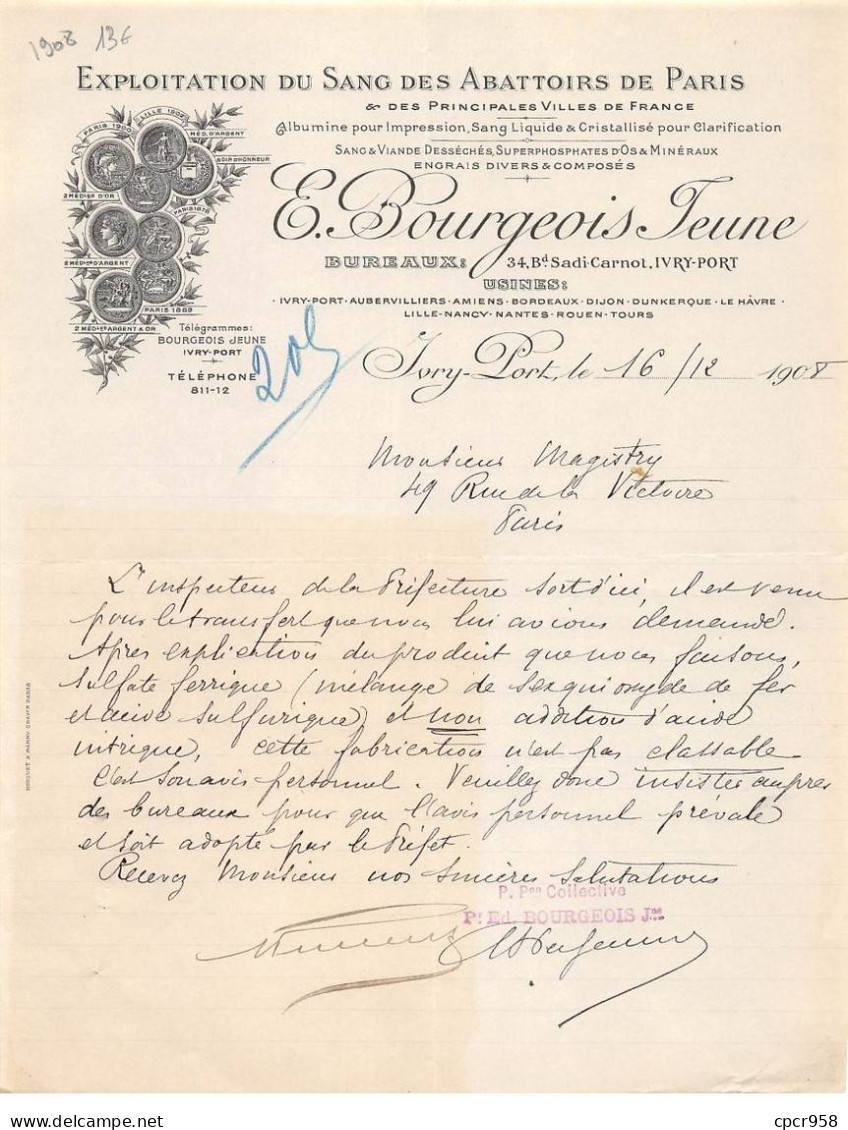 1908 13€
EXPLOITATION DU SANG DES ABATTOIRS DE PARIS
& DES PRINCIPALES VILLES DE FRANCE
Albumine pour Impression, Sang Liquide & Cristallisé pour Clarification
SANG & VIANDE DESSÉCHÉS, SUPERPHOSPHATES D'OS & MINÉRAUX
ENGRAIS DIVERS & COMPOSÉS
E. Bourgeois Jeune
BUREAUX: 34, Bd Sadi-Carnot, IVRY-PORT
USINES:
· IVRY-PORT · AUBERVILLIERS · AMIENS · BORDEAUX · DIJON · DUNKERQUE · LE HÂVRE ·
LILLE · NANCY · NANTES · ROUEN · TOURS
PARIS 1900
LILLE 1902
MÉD. D'ARGENT
& DIP. D'HONNEUR
2 MÉDles D'OR
PARIS 1878
2 MÉDles D'ARGENT
PARIS 1889
2 MÉDles ARGENT & OR
Télégrammes:
BOURGEOIS JEUNE
IVRY-PORT
TÉLÉPHONE
811-12
Ivry-Port, le 16/12 1908
Monsieur Magistry
49 Rue de la Victoire
Paris
L'inspecteur de la Préfecture sort d'ici, il est venu
pour le transfert que nous lui avions demandé.
Après explication du produit que nous faisons,
sulfate ferrique (mélange de sexquioxyde de fer
et acide sulfurique) et non addition d'acide
nitrique, cette fabrication n'est pas classable
C'est son avis personnel. Veuillez donc insister auprès
des bureaux pour que l'avis personnel prévale
et soit adopté par le Préfet.
Recevez Monsieur nos sincères salutations
P. Pon Collective
Pr Ed. BOURGEOIS Jne
delcampe.net
cpcr958